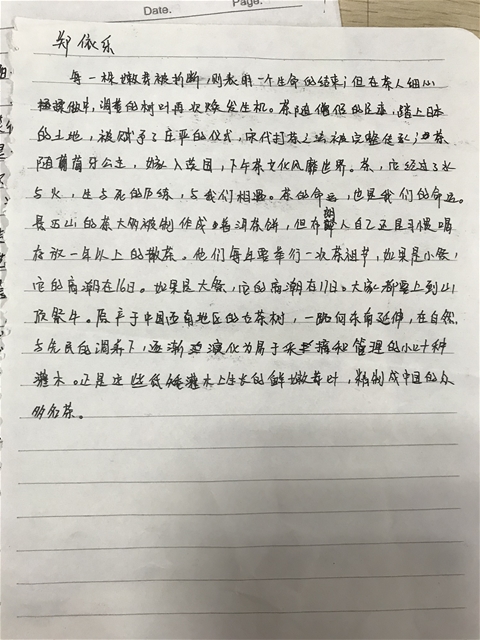 Date.
Page.
郑依乐
每一根嫩芽被折断,则表明一个生命的结束;但在茶人细心
揉捻做中,凋萎的树叶再次焕发生机。茶随僧侣的足迹,踏上日本
的土地,被赋予了庄严的仪式,宋代打茶之法被完整传承;茶
随葡萄牙公主,嫁入英国,下午茶文化风靡世界。茶,它经过了水
与火,生与死的历练,与我们相遇。茶的命运,也是我们的命运。
景迈山的茶大多被制作成普洱茶饼,但布朗人自己还是习惯喝
存放一年以上的散茶。他们每年要举行一次茶祖节,如果是小祭,
它的高潮在16日。如果是大祭,它的高潮在17日。大家都要上到山
顶祭牛。原产于中国西南地区的古茶树,一路向东南延伸,在自然
与先民的调养下,逐渐演化为易于采摘和管理的小叶种
灌木。正是这些低矮灌木上生长的鲜嫩芽叶,精制成中国的众
多名茶。